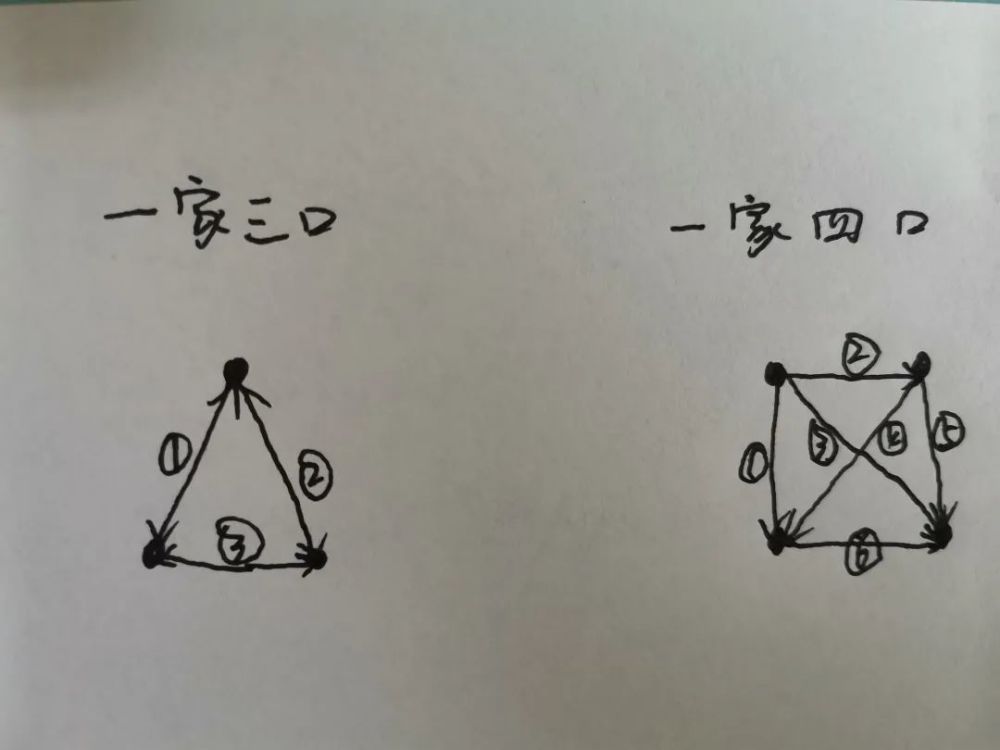 一家三口
一家四口
①
②
③
②
①
③
④
⑤
⑥